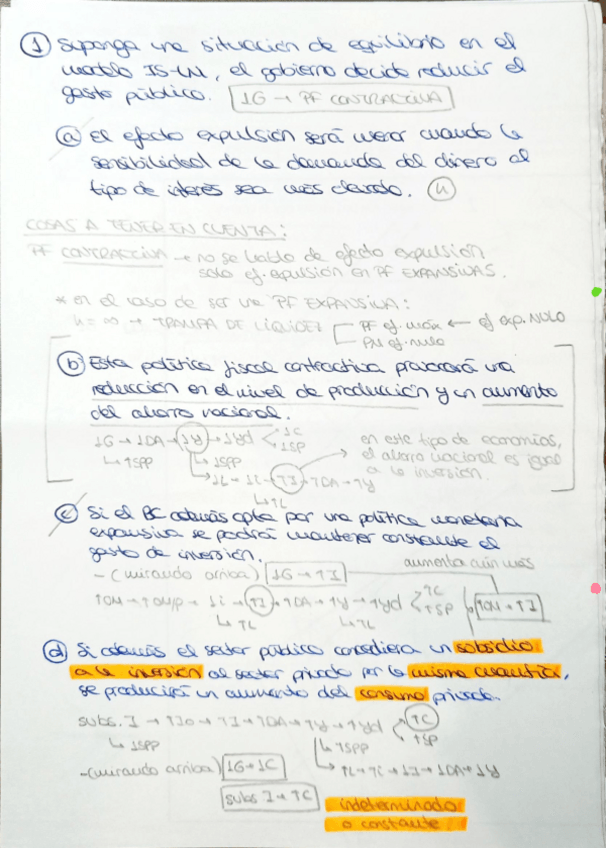 ① Suponga una situación de equilibrio en el
modelo IS-LM, el gobierno decide reducir el
gasto público. ↓G → PF CONTRACTIVA
ⓐ El efecto expulsión será menor cuando la
sensibilidad de la demanda del dinero al
tipo de interés sea más elevado. (h)
COSAS A TENER EN CUENTA:
PF CONTRACTIVA → no se habla de efecto expulsión
solo ef. expulsión en PF EXPANSIVAS.
* en el caso de ser una PF EXPANSIVA:
h = ∞ → TRAMPA DE LIQUIDEZ PF ef. máx ← ef exp. NULO
PM ef. nulo
ⓑ Esta política fiscal contractiva provocará una
reducción en el nivel de producción y un aumento
del ahorro nacional.
↓G → ↓DA → ↓Y → ↓Yd < ↓C
↓SP
↳ ↑SPP ↳ ↓SPP
↳ ↓L → ↓i → ↑I → ↑DA → ↑Y
↳ ↑L
en este tipo de economías,
el ahorro nacional es igual
a la inversión.
ⓒ Si el BC además opta por una política monetaria
expansiva se podrá mantener constante el
gasto de inversión.
aumenta aún más
- (mirando arriba) ↓G → ↑I
↑OM → ↑OM/P → ↓i → ↑I → ↑DA → ↑Y → ↑Yd < ↑C
↑SP
↑OM → ↑I
↳ ↑L ↳ ↑L
ⓓ Si además el sector público concediera un subsidio
a la inversión al sector privado por la misma cuantía,
se producirá un aumento del consumo privado.
subs. I → ↑Io → ↑I → ↑DA → ↑Y → ↑Yd < ↑C
↑SP
↳ ↓SPP ↳ ↑SPP
↳ ↑L → ↑i → ↓I → ↓DA → ↓Y
- (mirando arriba) ↓G → ↓C
subs I → ↑C
indeterminado
o constante